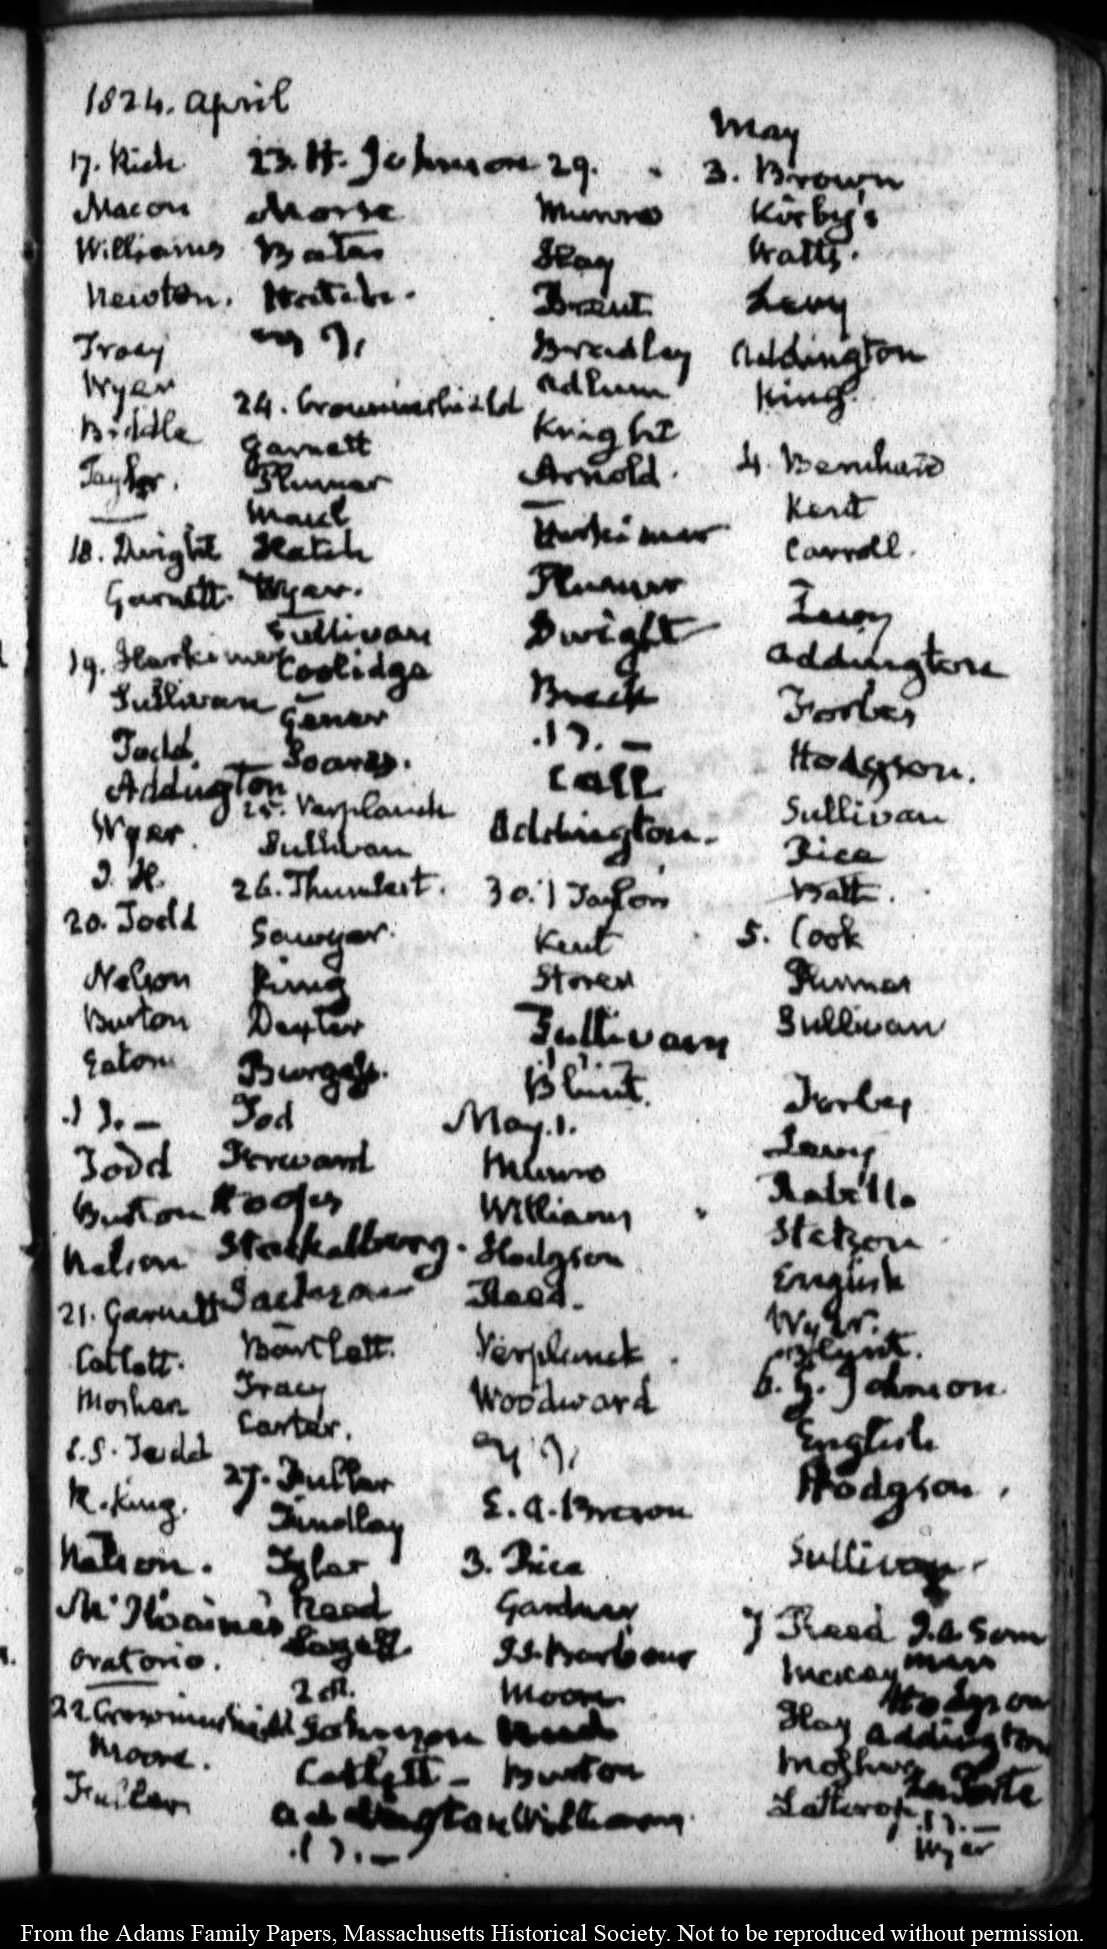 1824. April
17. Rich
Macon
Williams
Newton.
Tracy
Wyer
Biddle
Taylor.
18. Dwight
Garnett.
19. Herkimer
Sullivan
Todd.
Addington
Wyer.
J. H.
20. Todd
Nelson
Burton
Eaton
.1).—
Todd
Burton
Nelson
21. Garnett
Catlett.
Mosher
C.S. Todd
R. King.
Nelson.
Oratorio.
22. Crowninshield
Moore.
Fuller
23. H. Johnson
Morse
Bates
24. Crowninshield
Garnett
Plumer
Hatch
Wyer.
Sullivan
Coolidge
Gener
Soares.
25. Verplanck
Sullivan
26.
Sawyer.
King
Dexter
Burgess.
Tod
Forward
Rodges
Stackelberg.
Bartlett.
Tracy
Carter.
27. Fuller
Findlay
Tyler
Reed
28.
Johnson
Catlett —
Addington
.1).—
29.
Munroe
Hay
Brent
Bradley
Adlum
Knight
Arnold.
Herkimer
Plumer
Dwight
Breck
.1).—
Call
Addington.
30. Taylor
Kent
Storer
Sullivan
.1).—
Blunt.
May. 1.
Munro
Williams
Hodgson
Reed.
Verplanck
Woodward
E. A. Brown
3. Rice
Gardner
Moore
Burton
Williams.
May
3. Brown
Kirby's
Watts.
Levy
Addington
King.
4. Bernhard
Kent
Carroll.
Levy
Addington
Forbes
Hodgson.
Sullivan
Rice
Batt.
5. Cook
Plumer
Sullivan
Forbes
Levy
Rebello
Stetson
English
Wyer.
Blunt.
6. J. Johnson.
English
Hodgson.
Sullivan.
7 Reed
McKay
Hay
Lathrop
Hodgson
Addington
.1).—
Wyer
From the Adams Family Papers, Massachusetts Historical Society. Not to be reproduced without permission.